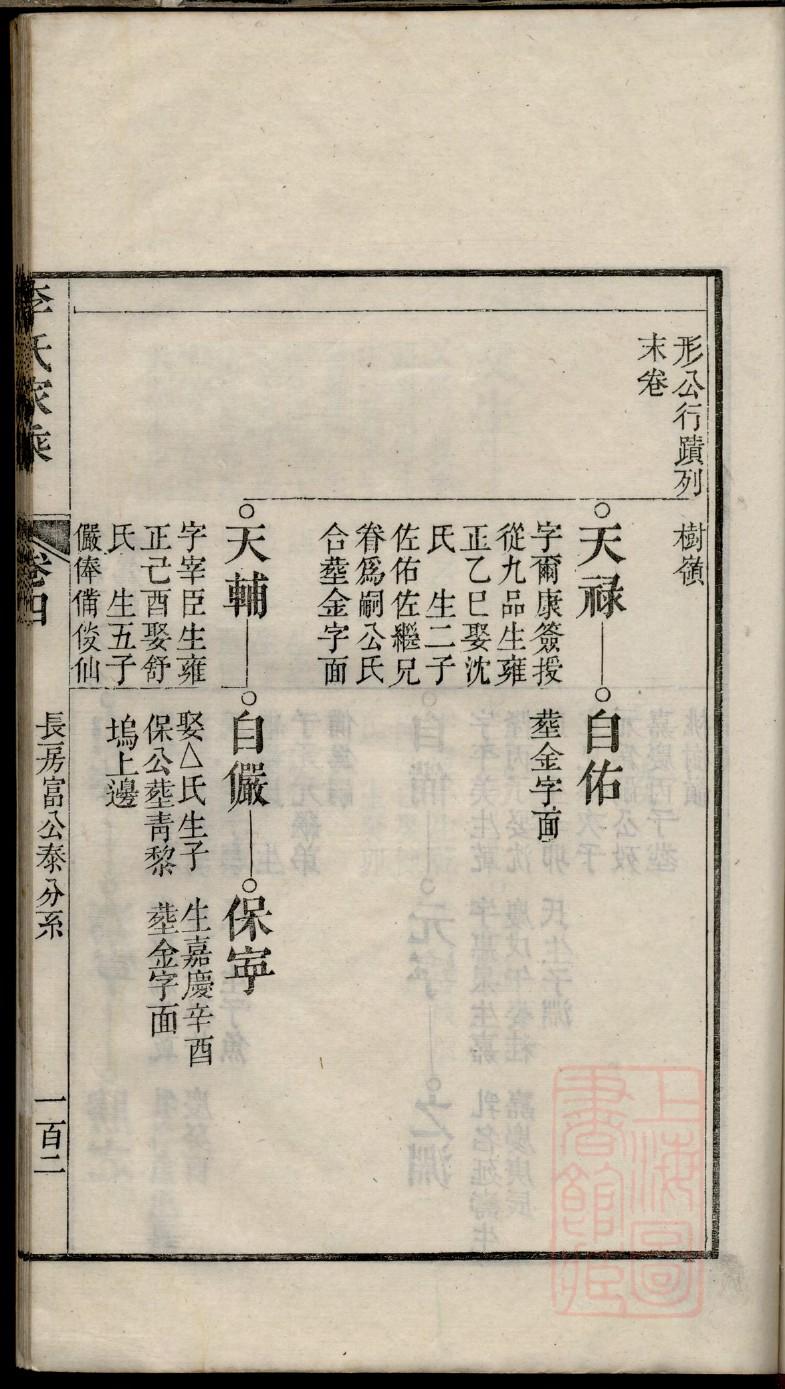 形公行蹟列
末卷
樹嶺
天祿
字爾康簽授
從九品生雍
正乙巳娶沈
氏 生二子
佐佑佐繼兄
眷爲嗣公氏
合塟金字面
自佑
塟金字面
天輔
字宰臣生雍
正己酉娶舒
氏 生五子
儼俸備俊仙
自儼
娶△氏生子
保公塟青黎
塢上邊
保寜
生嘉慶辛酉
塟金字面
李氏家乘
卷四
長房富公泰分系
一百二
上海圖
書館藏